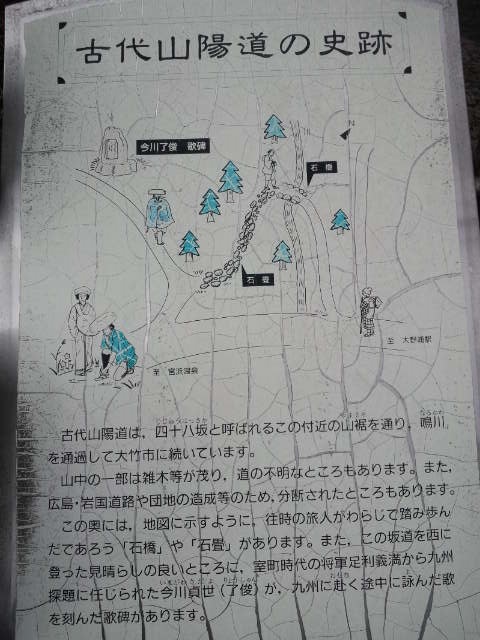 古代山陽道の史跡
今川了俊 歌碑
N
石橋
石畳
至 大野浦駅
至 宮浜温泉
古代山陽道は，四十八坂と呼ばれるこの付近の山裾を通り，鳴川
を通過して大竹市に続いています。
山中の一部は雑木等が茂り，道の不明なところもあります。また，
広島・岩国道路や団地の造成等のため，分断されたところもあります。
この奥には，地図に示すように，往時の旅人がわらじで踏み歩ん
だであろう「石橋」や「石畳」があります。また，この坂道を西に
登った見晴らしの良いところに，室町時代の将軍足利義満から九州
探題に任じられた今川貞世（了俊）が，九州に赴く途中に詠んだ歌
を刻んだ歌碑があります。